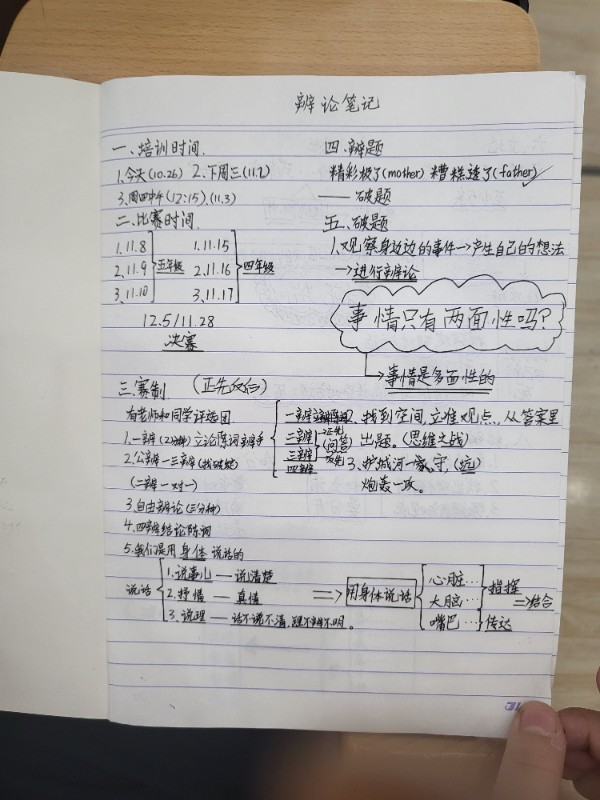 辩论笔记
一、培训时间.
1.今天(10.26) 2.下周三(11.2)
3.周四中午(12:15).(11.3)
二、比赛时间.
1.11.8
2.11.9
3.11.10
五年级
1.11.15
2.11.16
3.11.17
四年级
12.5/11.28
决赛
三.赛制 (正先反后)
有老师和同学评选团
1.一辩(2分钟)立论陈词
2.公辩一三辩
(二辩一对一)
3.自由辩论(三分钟)
4.四辩结论陈词
5.我们是用身体说话的
一辩
二辩
三辩
四辩
(问答)
找到空间,立谁观点,从答案里
出题.(思维之战)
3、护城河一家,守,(远)
炮轰一攻。
说话
1.说事儿——说清楚
2.抒情——真情
3.说理——话不说不清,理不辩不明。
=>
用身体说话
心脏…
大脑…
嘴巴…
指挥
传达
=>结合
四、辩题
精彩极了(mother) 糟糕透了(father)
——破题
五、破题
1.观察身边边的事件→产生自己的想法
→进行辩论
事情只有两面性吗?
→事情是多面性的